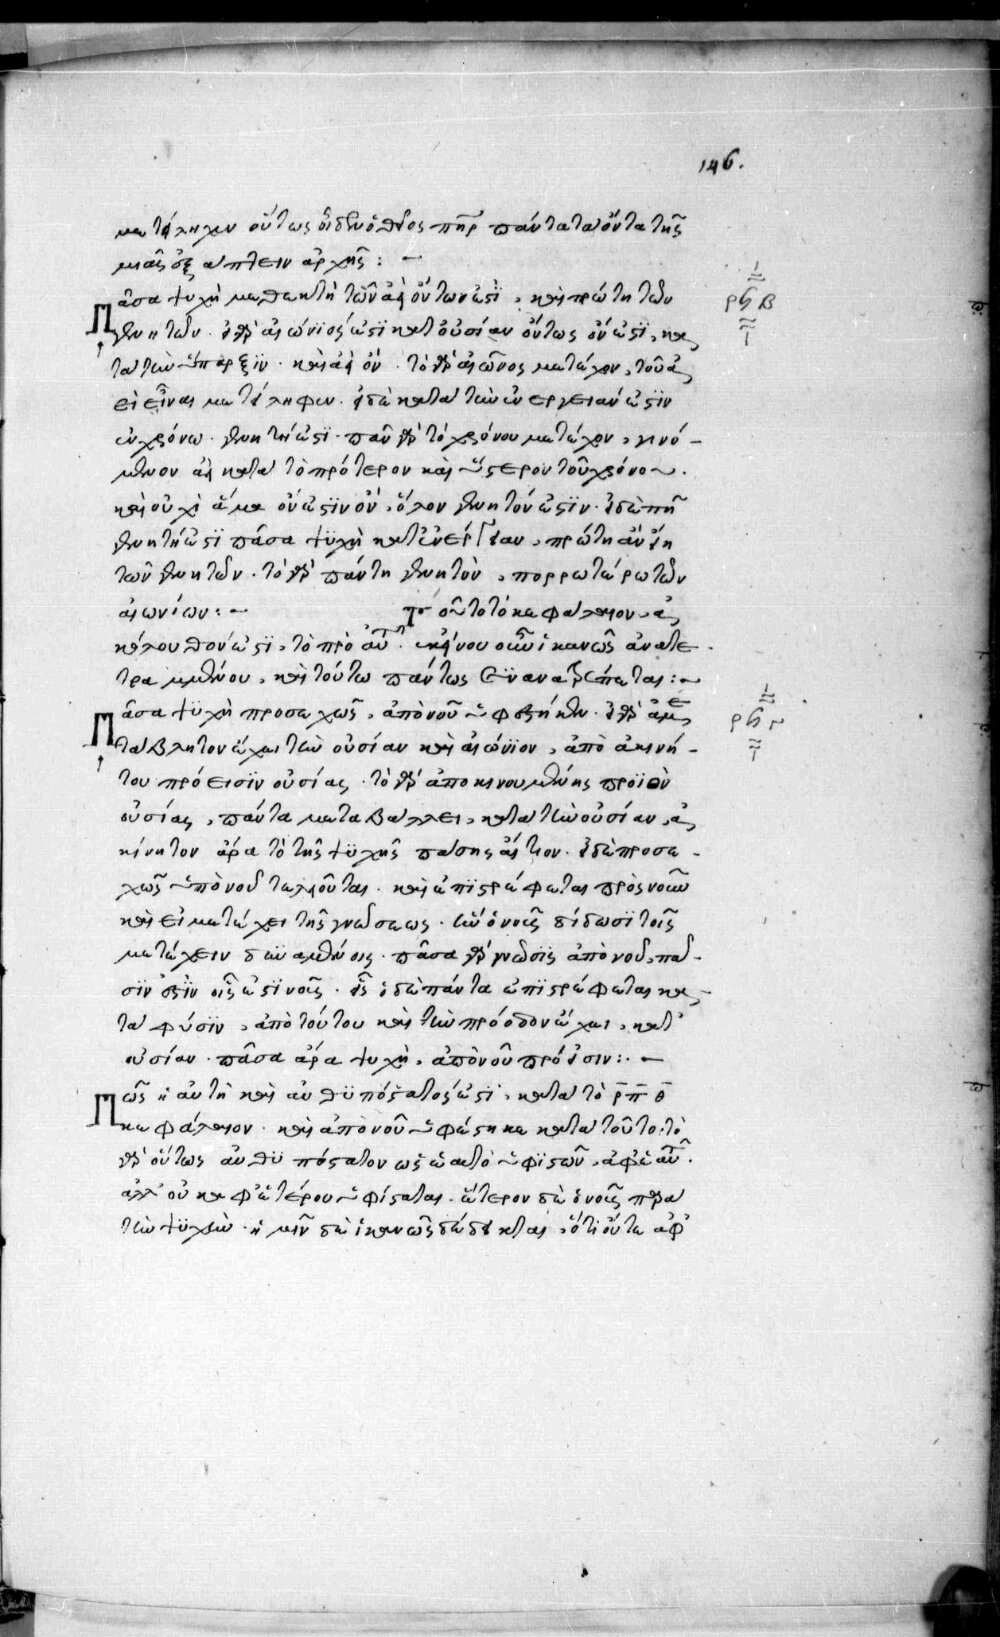 146.
μετέληχεν οὕτως οἶδεν ὁ θεὸς πατὴρ πάντα τὰ ὄντα τῆς
μιᾶς ἐξάπτειν ἀρχῆς : —
Πᾶσα ψυχὴ μεθεκτὴ τῶν ἀεὶ ὄντων ἐστὶ, καὶ πρώτη τῶν
ρϟβ
γενητῶν. εἰ γὰρ αἰώνιός ἐστι κατ' οὐσίαν ὄντως ὄν ἐστι, κα
τὰ τὴν ὕπαρξιν. καὶ ἀεὶ ὄν. τὸ γὰρ αἰῶνος μετέχον, τοῦ ἀ
εὶ εἶναι μετείληφεν. εἰ δὲ κατὰ τὴν ἐνέργειάν ἐστιν
ἐν χρόνω. γενητή ἐστι. πᾶν γὰρ τὸ χρόνου μετέχον, γινό-
μενον ἀεὶ κατὰ τὸ πρότερον καὶ ὕστερον τοῦ χρόνου.
καὶ οὐχὶ ἅμα ὅ ἐστιν ὂν, ὅλον γενητόν ἐστιν. εἰ δέ πῃ
γενητή ἐστι πᾶσα ψυχὴ κατ' ἐνέργειαν, πρώτη ἂν εἴη
τῶν γενητῶν. τὸ γὰρ πάντη γενητὸν, πορρωτέρω τῶν
αἰωνίων : — Τούτο τὸ κεφάλαιον, ἀ
κόλουθόν ἐστι, τὸ πρὸ αὐτοῦ. ἐκείνου οὖν ἱκανῶς ἀνατε-
τραμμένου, καὶ τούτω πάντως συναναιρεῖται : ~
Πᾶσα ψυχὴ προσεχῶς, ἀπὸ νοῦ ὑφέστηκεν. εἰ γὰρ ἀμε
ρϟγ
τάβλητον ἔχει τὴν οὐσίαν καὶ αἰώνιον, ἀπὸ ἀκινή-
του πρόεισιν οὐσίας. τὸ γὰρ ἀπο κινουμένης προϊὸν
οὐσίας, πάντα μεταβάλλει, κατὰ τὴν οὐσίαν, ἀ
κίνητον ἄρα τὸ τῆς ψυχῆς πάσης αἴτιον. εἰ δὲ προσε-
χῶς ὑπὸ νοῦ τελειοῦται. καὶ ἐπιστρέφεται πρὸς νοῦν
καὶ εἰ μετέχει τῆς γνώσεως. ἣν ὁ νοῦς δίδωσι τοῖς
μετέχειν δυναμένοις. πᾶσα γὰρ γνῶσις ἀπὸ νοῦ, πᾶ-
σιν ἐστὶν οἷς ἐστι νοῦς. εἰς ὃ δὲ πάντα ἐπιστρέφεται κα-
τὰ φύσιν, ἀπὸ τούτου καὶ τὴν πρόοδον ἔχει, κατ'
οὐσίαν. πᾶσα ἄρα ψυχὴ, ἀπὸ νοῦ πρόεισιν : —
Πῶς ἡ αὐτὴ καὶ αὐθυπόστατός ἐστι, κατὰ τὸ ρπθ
κεφάλαιον. καὶ ἀπὸ νοῦ ὑφέστηκε κατὰ τοῦτο. τὸ
γὰρ ὄντως αὐθυπόστατον ὡς ἑαυτὸ ὑφιστῶν, ἀφ' ἑαυτοῦ.
ἀλλ' οὐκ ἀφ' ἑτέρου ὑφίσταται. ἕτερον δὲ ὁ νοῦς παρὰ
τὴν ψυχὴν. ἡμῖν δὲ ἱκανῶς δέδεικται, ὅτι οὔτε ἀφ'